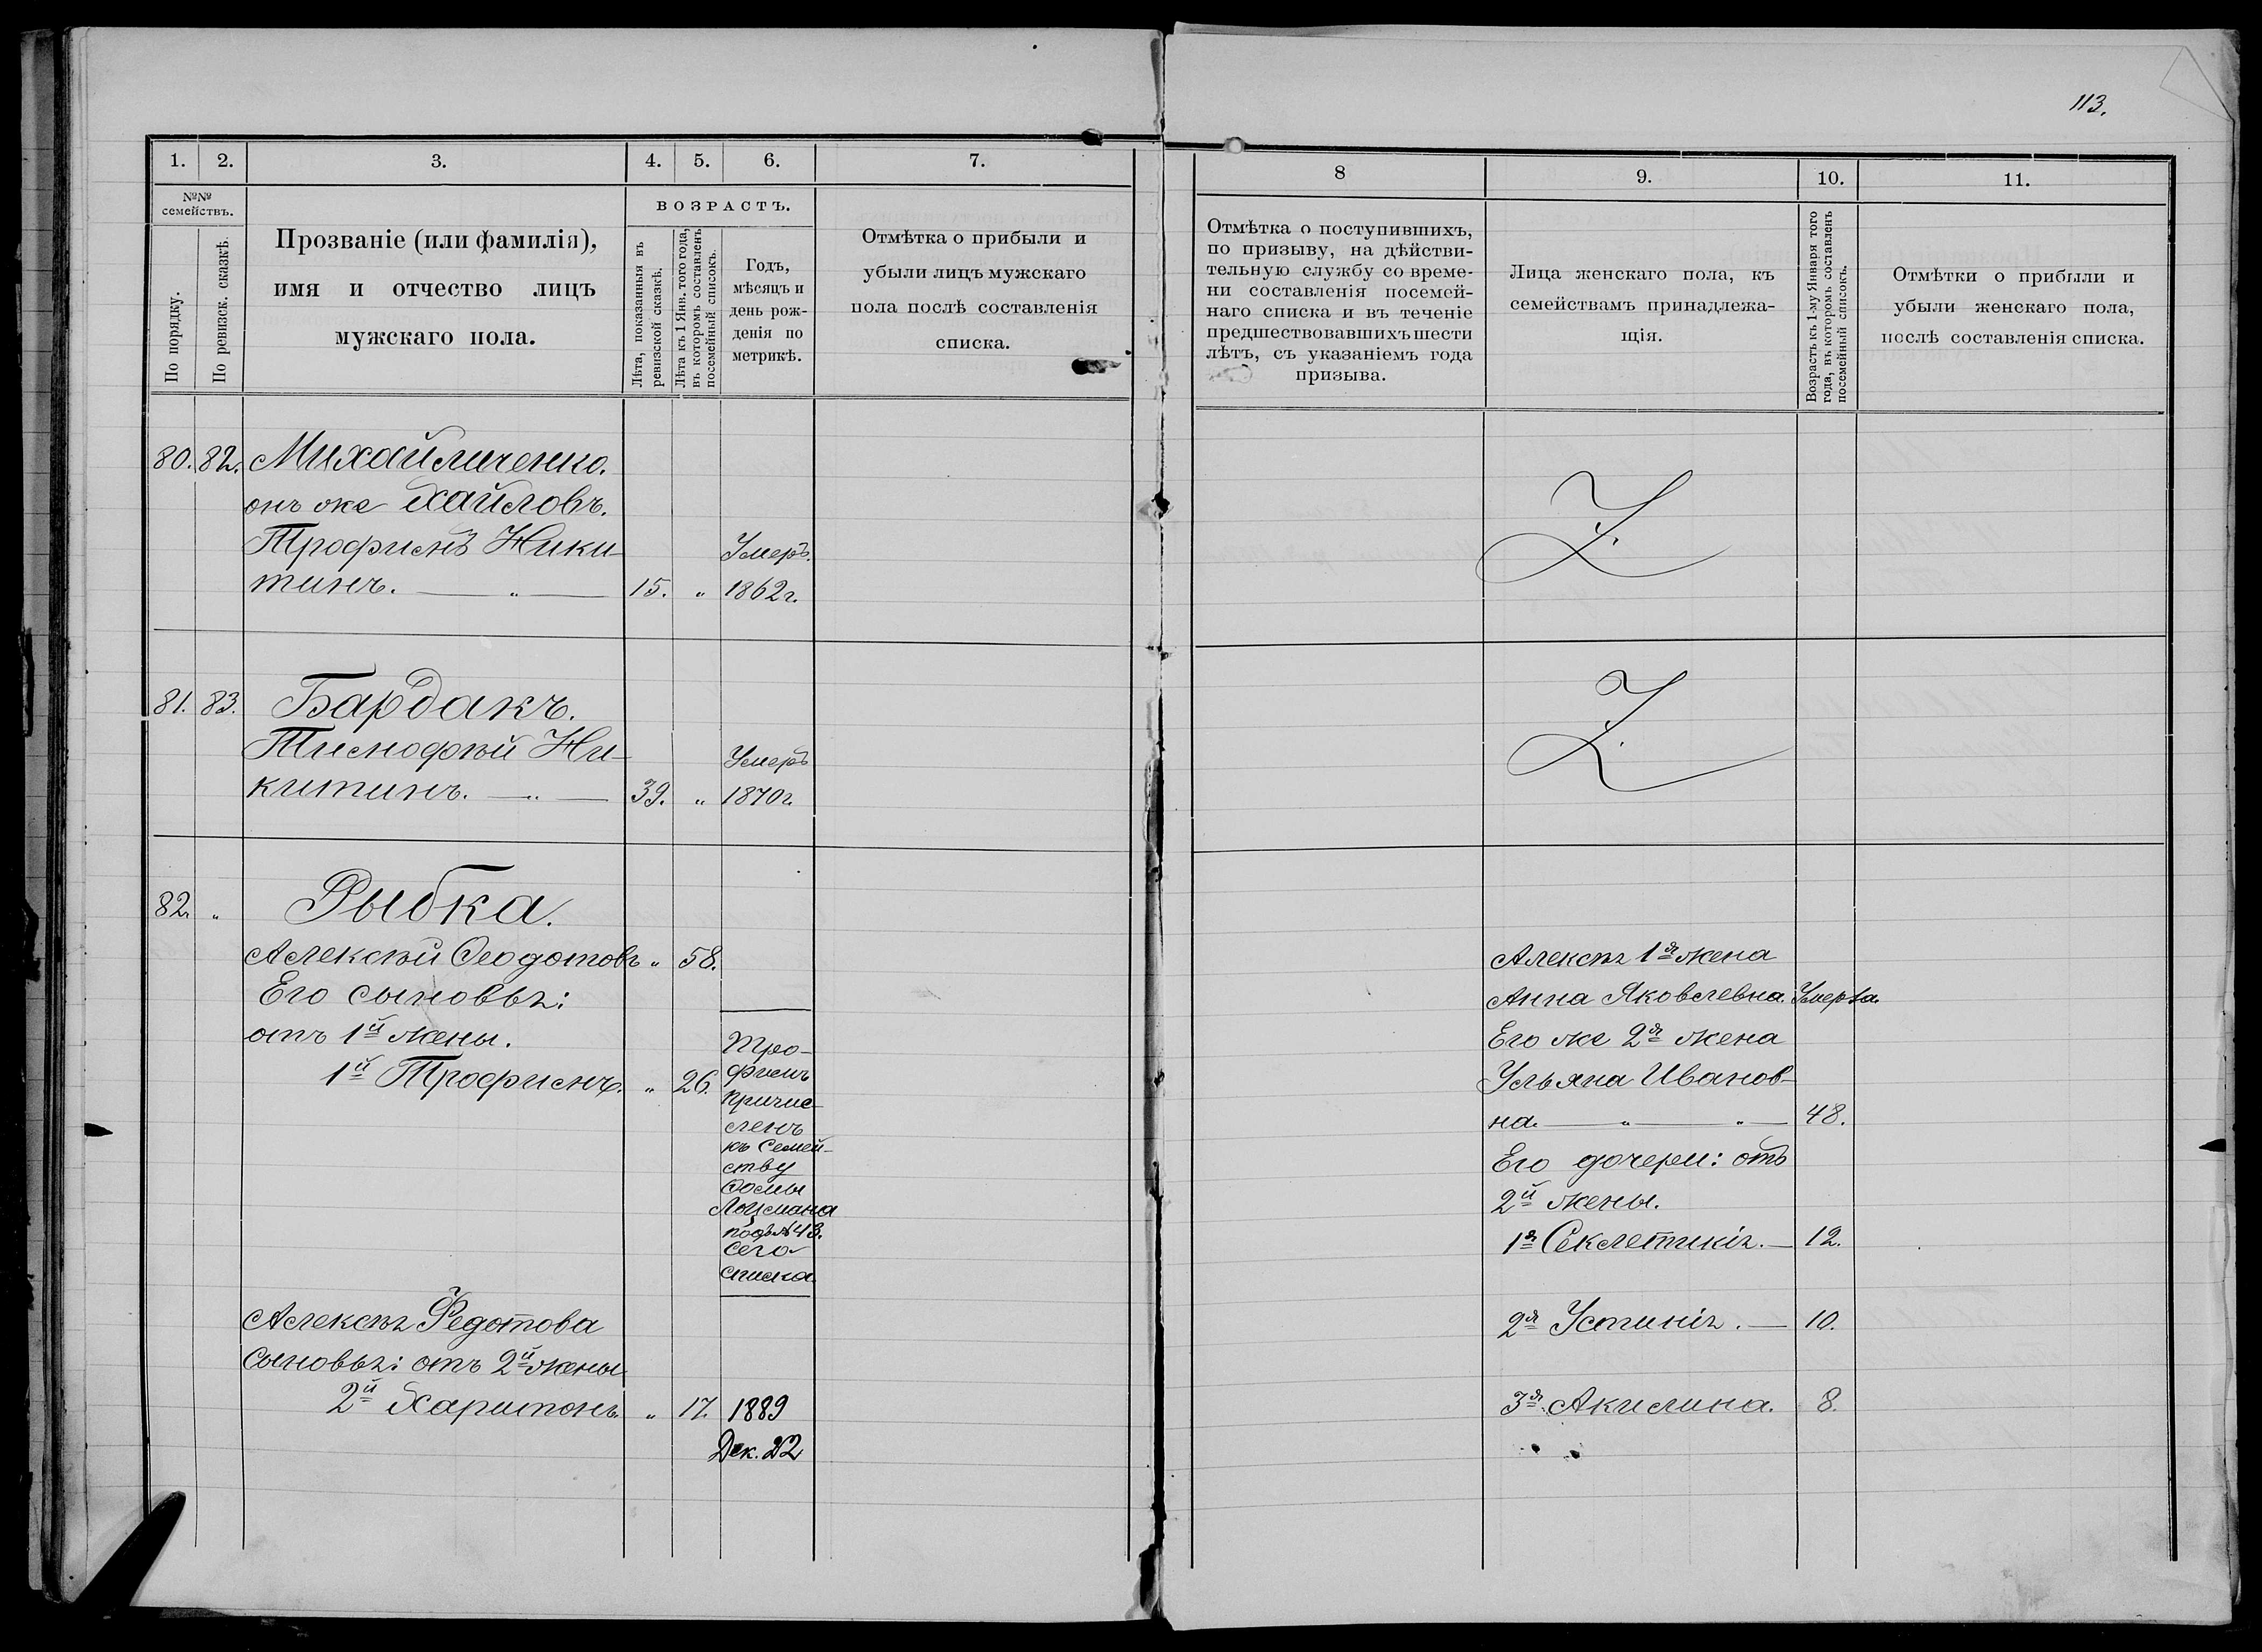 113.
1. 2. 3. 4. 5. 6. 7.
№№ семействъ.
По порядку.
По ревизск. сказкѣ.
Прозваніе (или фамилія),
имя и отчество лицъ
мужскаго пола.
ВОЗРАСТЪ.
Лѣта, показанныя въ
ревизской сказкѣ.
Лѣта къ 1 Янв. того года,
въ которомъ составленъ
посемейный списокъ.
Годъ,
мѣсяцъ и
день рож-
денія по
метрикѣ.
Отмѣтка о прибыли и
убыли лицъ мужскаго
пола послѣ составленія
списка.
8 9. 10. 11.
Отмѣтка о поступившихъ,
по призыву, на дѣйстви-
тельную службу со време-
ни составленія посемей-
наго списка и въ теченіе
предшествовавшихъ шести
лѣтъ, съ указаніемъ года
призыва.
Лица женскаго пола, къ
семействамъ принадлежа-
щія.
Возрастъ къ 1-му Января того
года, въ которомъ составленъ
посемейный списокъ.
Отмѣтки о прибыли и
убыли женскаго пола,
послѣ составленія списка.
80. 82. Михайличенко.
онъ же Хайловъ.
Трофимъ Ники- Умеръ.
тинъ. — „ — 15. „ 1862 г.
81. 83. Бардакъ.
Тимофѣй Ни- Умеръ
китинъ. — „ — 39. „ 1870 г.
82. „ Рыбка.
Алексѣй Ѳеодотовъ „ 58.
Его сыновья:
отъ 1й жены.
1й Трофимъ. „ 26.
Тро-
фимъ
причис-
ленъ
къ Семей-
ству
Ѳомы
Лоцмана
подъ №43.
сего
списка.
Алексѣя Федотова
сыновья: отъ 2й жены
2й Харитонъ. „ 17. 1889
Дек. 22
Алексѣя 1я жена
Анна Яковлевна. Умерла.
Его же 2я жена
Ульяна Иванов-
на. — „ — „ — 48.
Его дочери: отъ
2й жены.
1я Секлетикія. — 12.
2я Устинія. — 10.
3я Акилина. 8.